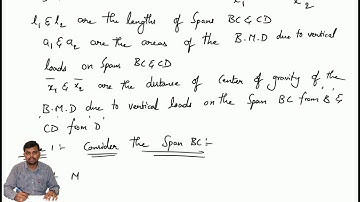 l₁ & l₂ are the lengths of Span BC & CD
a₁ & a₂ are the areas of the B.M.D due to vertical
loads on Span BC & CD
x̄₁ & x̄₂ are the distance of Center of gravity of the
B.M.D due to vertical loads on the Span BC from 'B' &
'CD from 'D'
1:- Consider the Span BC:-
M